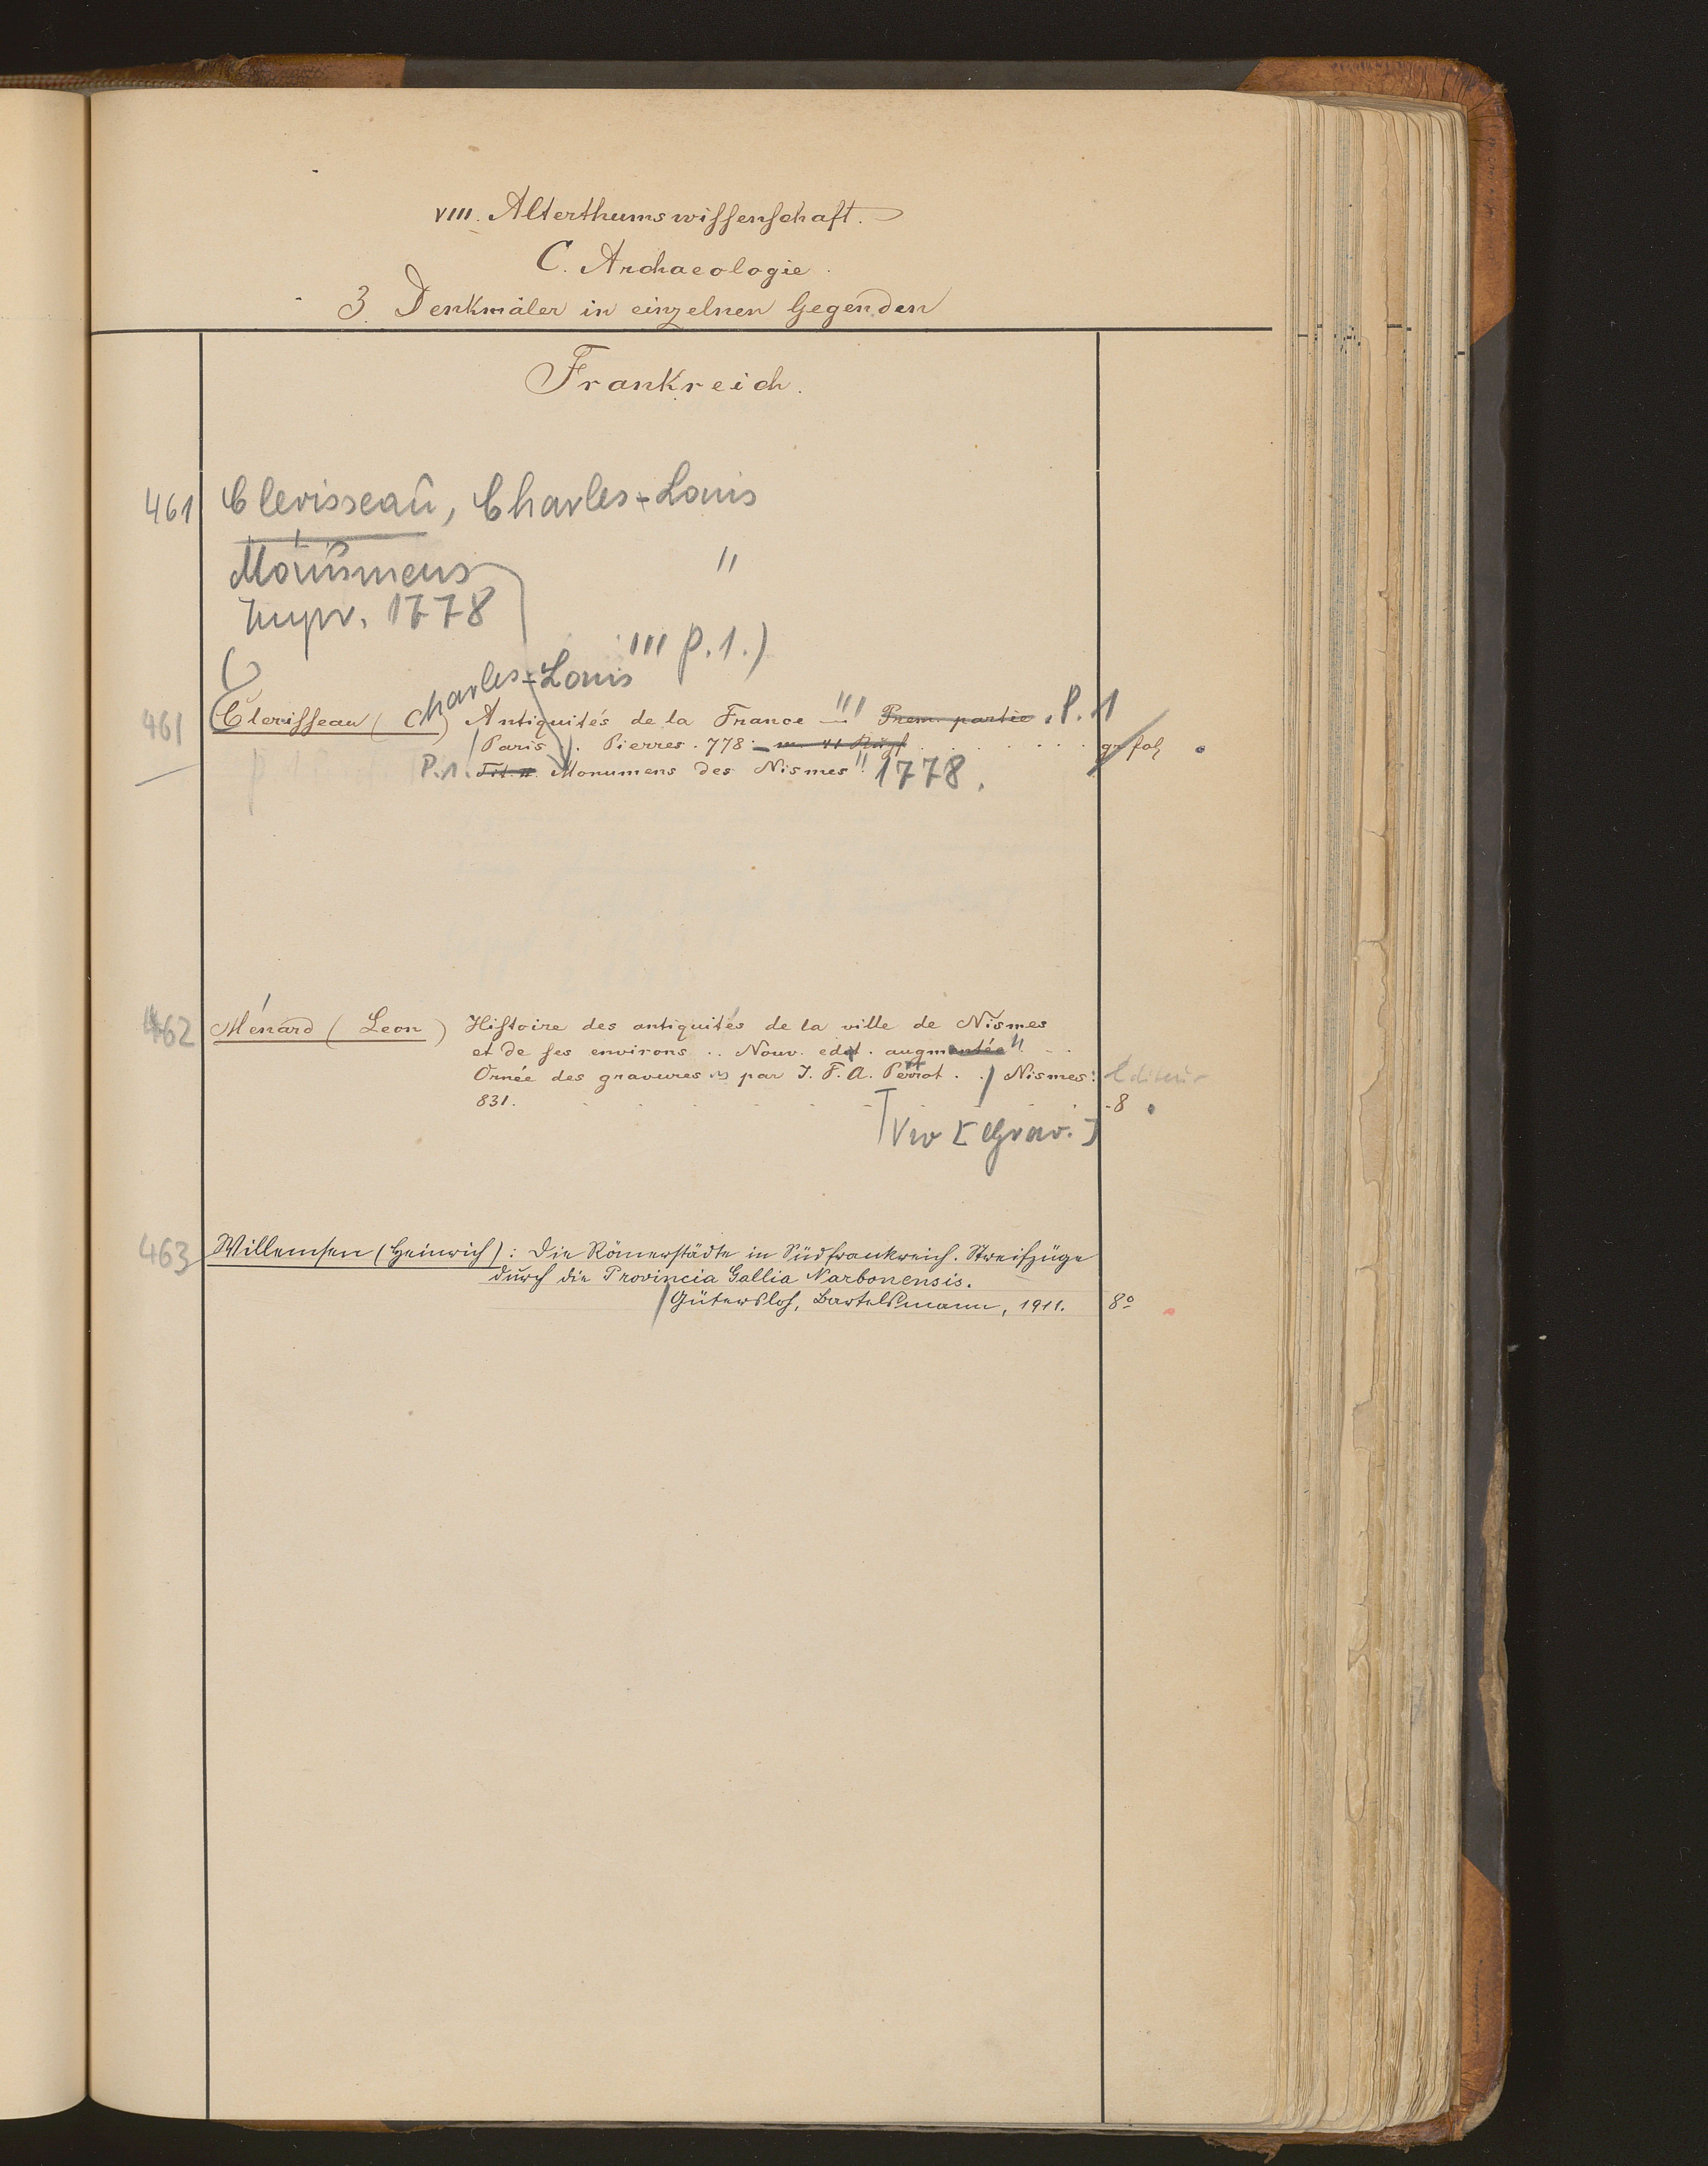 VIII. Alterthumswissenschaft.
C. Archaeologie.
3. Denkmäler in einzelnen Gegenden
Frankreich.
461 Clerisseau, Charles-Louis
Monumens "
Impr. 1778
''' P.1.)
461 Clerisseau (Charles-Louis) Antiquités de la France ''' Prem. partie . P. 1
Paris . Pierres . 778 gr fol
P.1. Monumens des Nismes" 1778.
462 Ménard (Leon) Histoire des antiquités de la ville de Nismes
et de ses environs .. Nouv. edit. augmentée"
Ornée des gravures par J. F. A. Perrot . . / Nismes: Editeur
831. 8
Viv [Grav.]
463 Willemsen (Heinrich): Die Römerstädte in Südfrankreich. Streifzüge
durch die Provincia Gallia Narbonensis.
Gütersloh, Bertelsmann, 1911. 8º